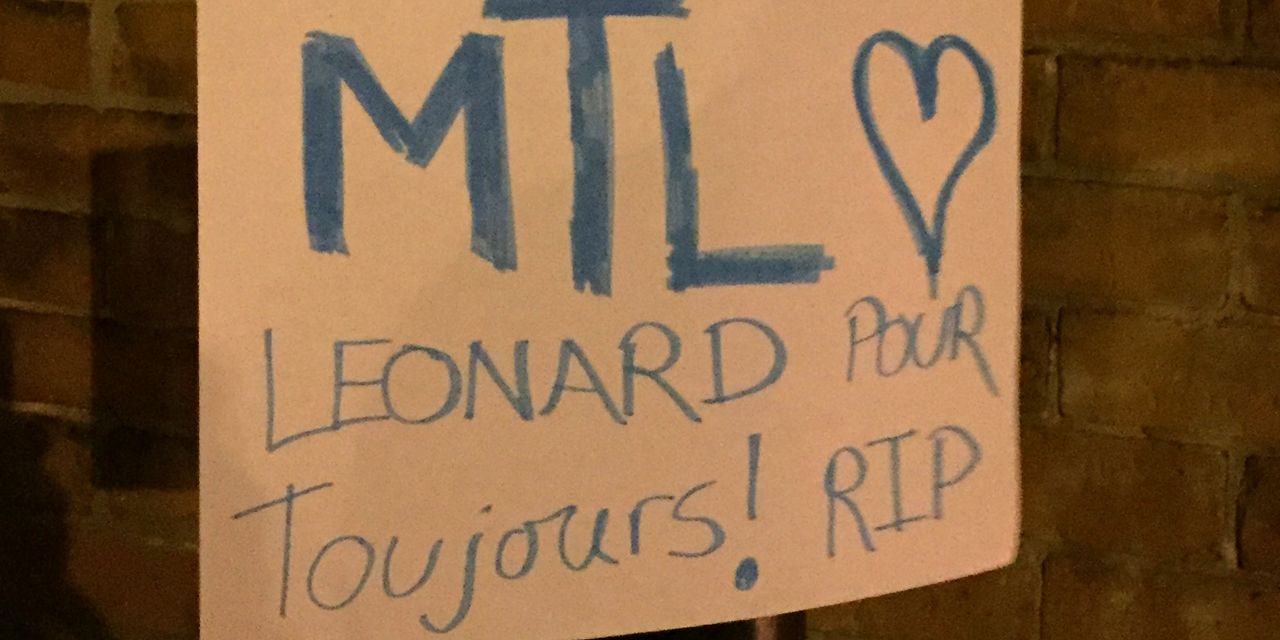 MTL
LEONARD POUR
Toujours! RIP